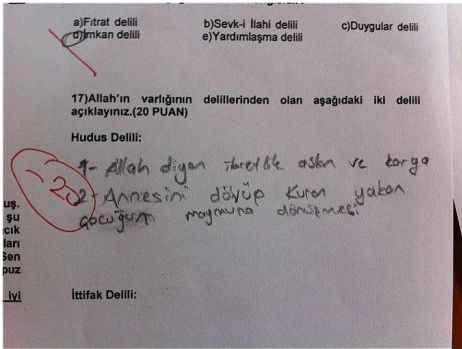 a)Fıtrat delili b)Sevk-i İlahi delili c)Duygular delili
d)İmkan delili e)Yardımlaşma delili
17)Allah'ın varlığının delillerinden olan aşağıdaki iki delili
açıklayınız.(20 PUAN)
Hudus Delili:
1- Allah diyen ibretlik aslan ve karga
2- Annesini dövüp Kuran yakan
çocuğun maymuna dönüşmesi
-20
uş.
şu
cık
ları
Sen
puz
iyi
İttifak Delili: